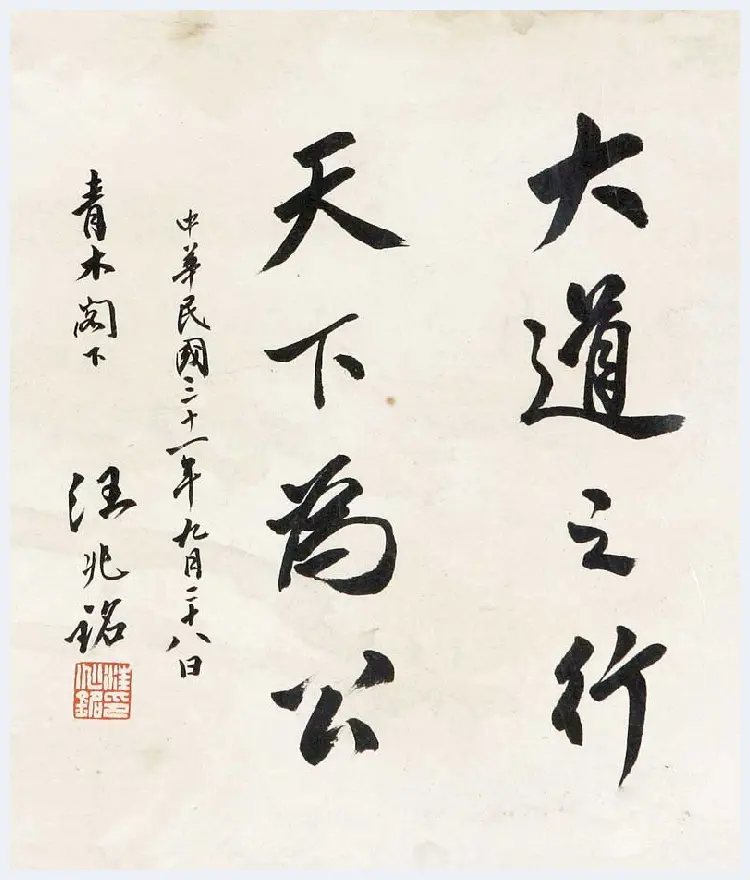 大道之行
天下為公
中華民國三十一年九月二十八日
青木閣下
汪兆銘
汪兆銘印